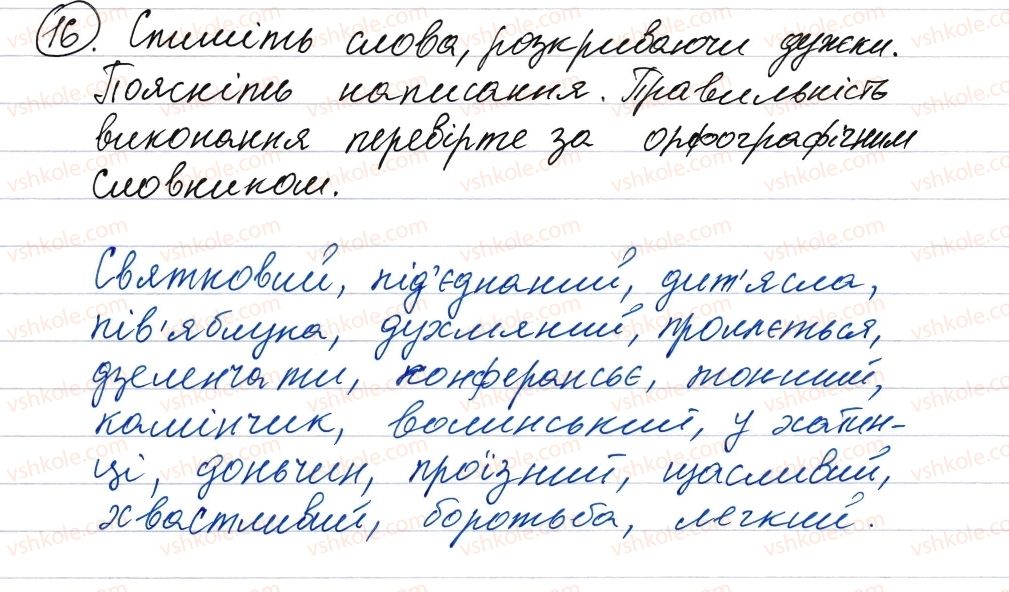 16. Спишіть слова, розкриваючи дужки.
Поясніть написання. Правильність
виконання перевірте за орфографічним
словником.
Святковий, під'єднаний, дит'ясла,
пів'яблука, духмяний, проллється,
дзеленчати, конферансьє, тонший,
камінчик, волинський, у хатин-
ці, доньчин, проїзний, щасливий,
хвастливий, боротьба, легкий.
vshkole.com